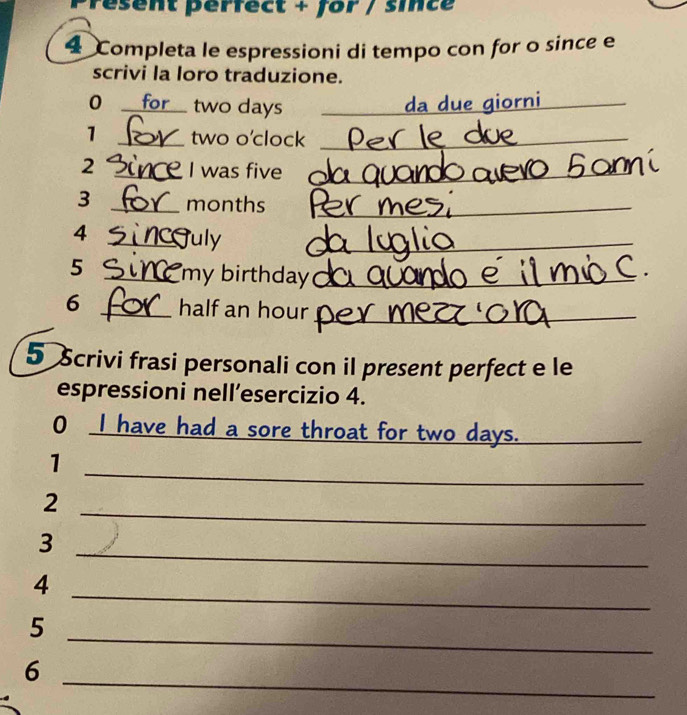 Present perfect + for / since
4 Completa le espressioni di tempo con for o since e
scrivi la loro traduzione.
0 for two days da due giorni
1 for two o'clock Per le due
2 Since I was five da quando avevo 5 anni
3 for months Per mesi
4 since July da luglio
5 Since my birthday da quando è il mio C.
6 for half an hour per mezz'ora
5 Scrivi frasi personali con il present perfect e le
espressioni nell'esercizio 4.
0 I have had a sore throat for two days.
1
2
3
4
5
6